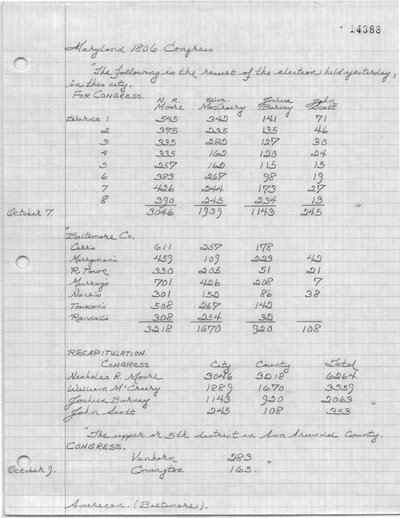 14388
Maryland 1806 Congress
"The following is the result of the election held yesterday,
in this city.
FOR CONGRESS. N. R. Moore Wm. McCreery Joshua Barney John Scott
Wards 1 545 342 141 71
2 375 235 135 46
3 335 282 127 30
4 335 162 120 24
5 257 162 115 15
6 383 267 98 19
7 426 244 173 27
8 390 245 234 13
October 7. 3046 1939 1143 245 "
"Baltimore Co.
Carr's 611 257 178
Merryman's 459 109 223 42
R. Town 330 205 51 21
Murray's 701 426 208 7
Hare's 301 152 86 38
Towson's 508 267 142
Randall's 308 254 32
3218 1670 920 108
RECAPITULATION.
CONGRESS City County Total
Nicholas R. Moore 3046 3218 6264
William McCreery 1889 1670 3559
Joshua Barney 1143 920 2063
John Scott 245 108 353 "
"The upper or 5th district in Ann Arundel County.
CONGRESS.
Vanhorn 283
October 9. Covington 163. "
American. (Baltimore).